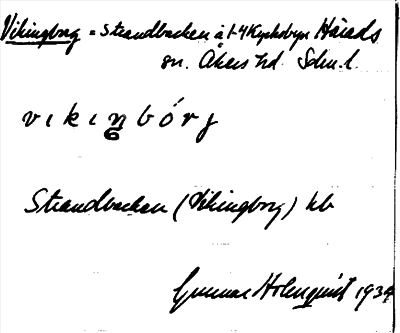 Vikingborg = Strandbacken å 1-4 Kyrkobyn Härads
sn. Åkers hd. Södm. l.
vıkıŋbórj
Strandbacken (Vikingborg) hb
Gunnar Holmquist 1934